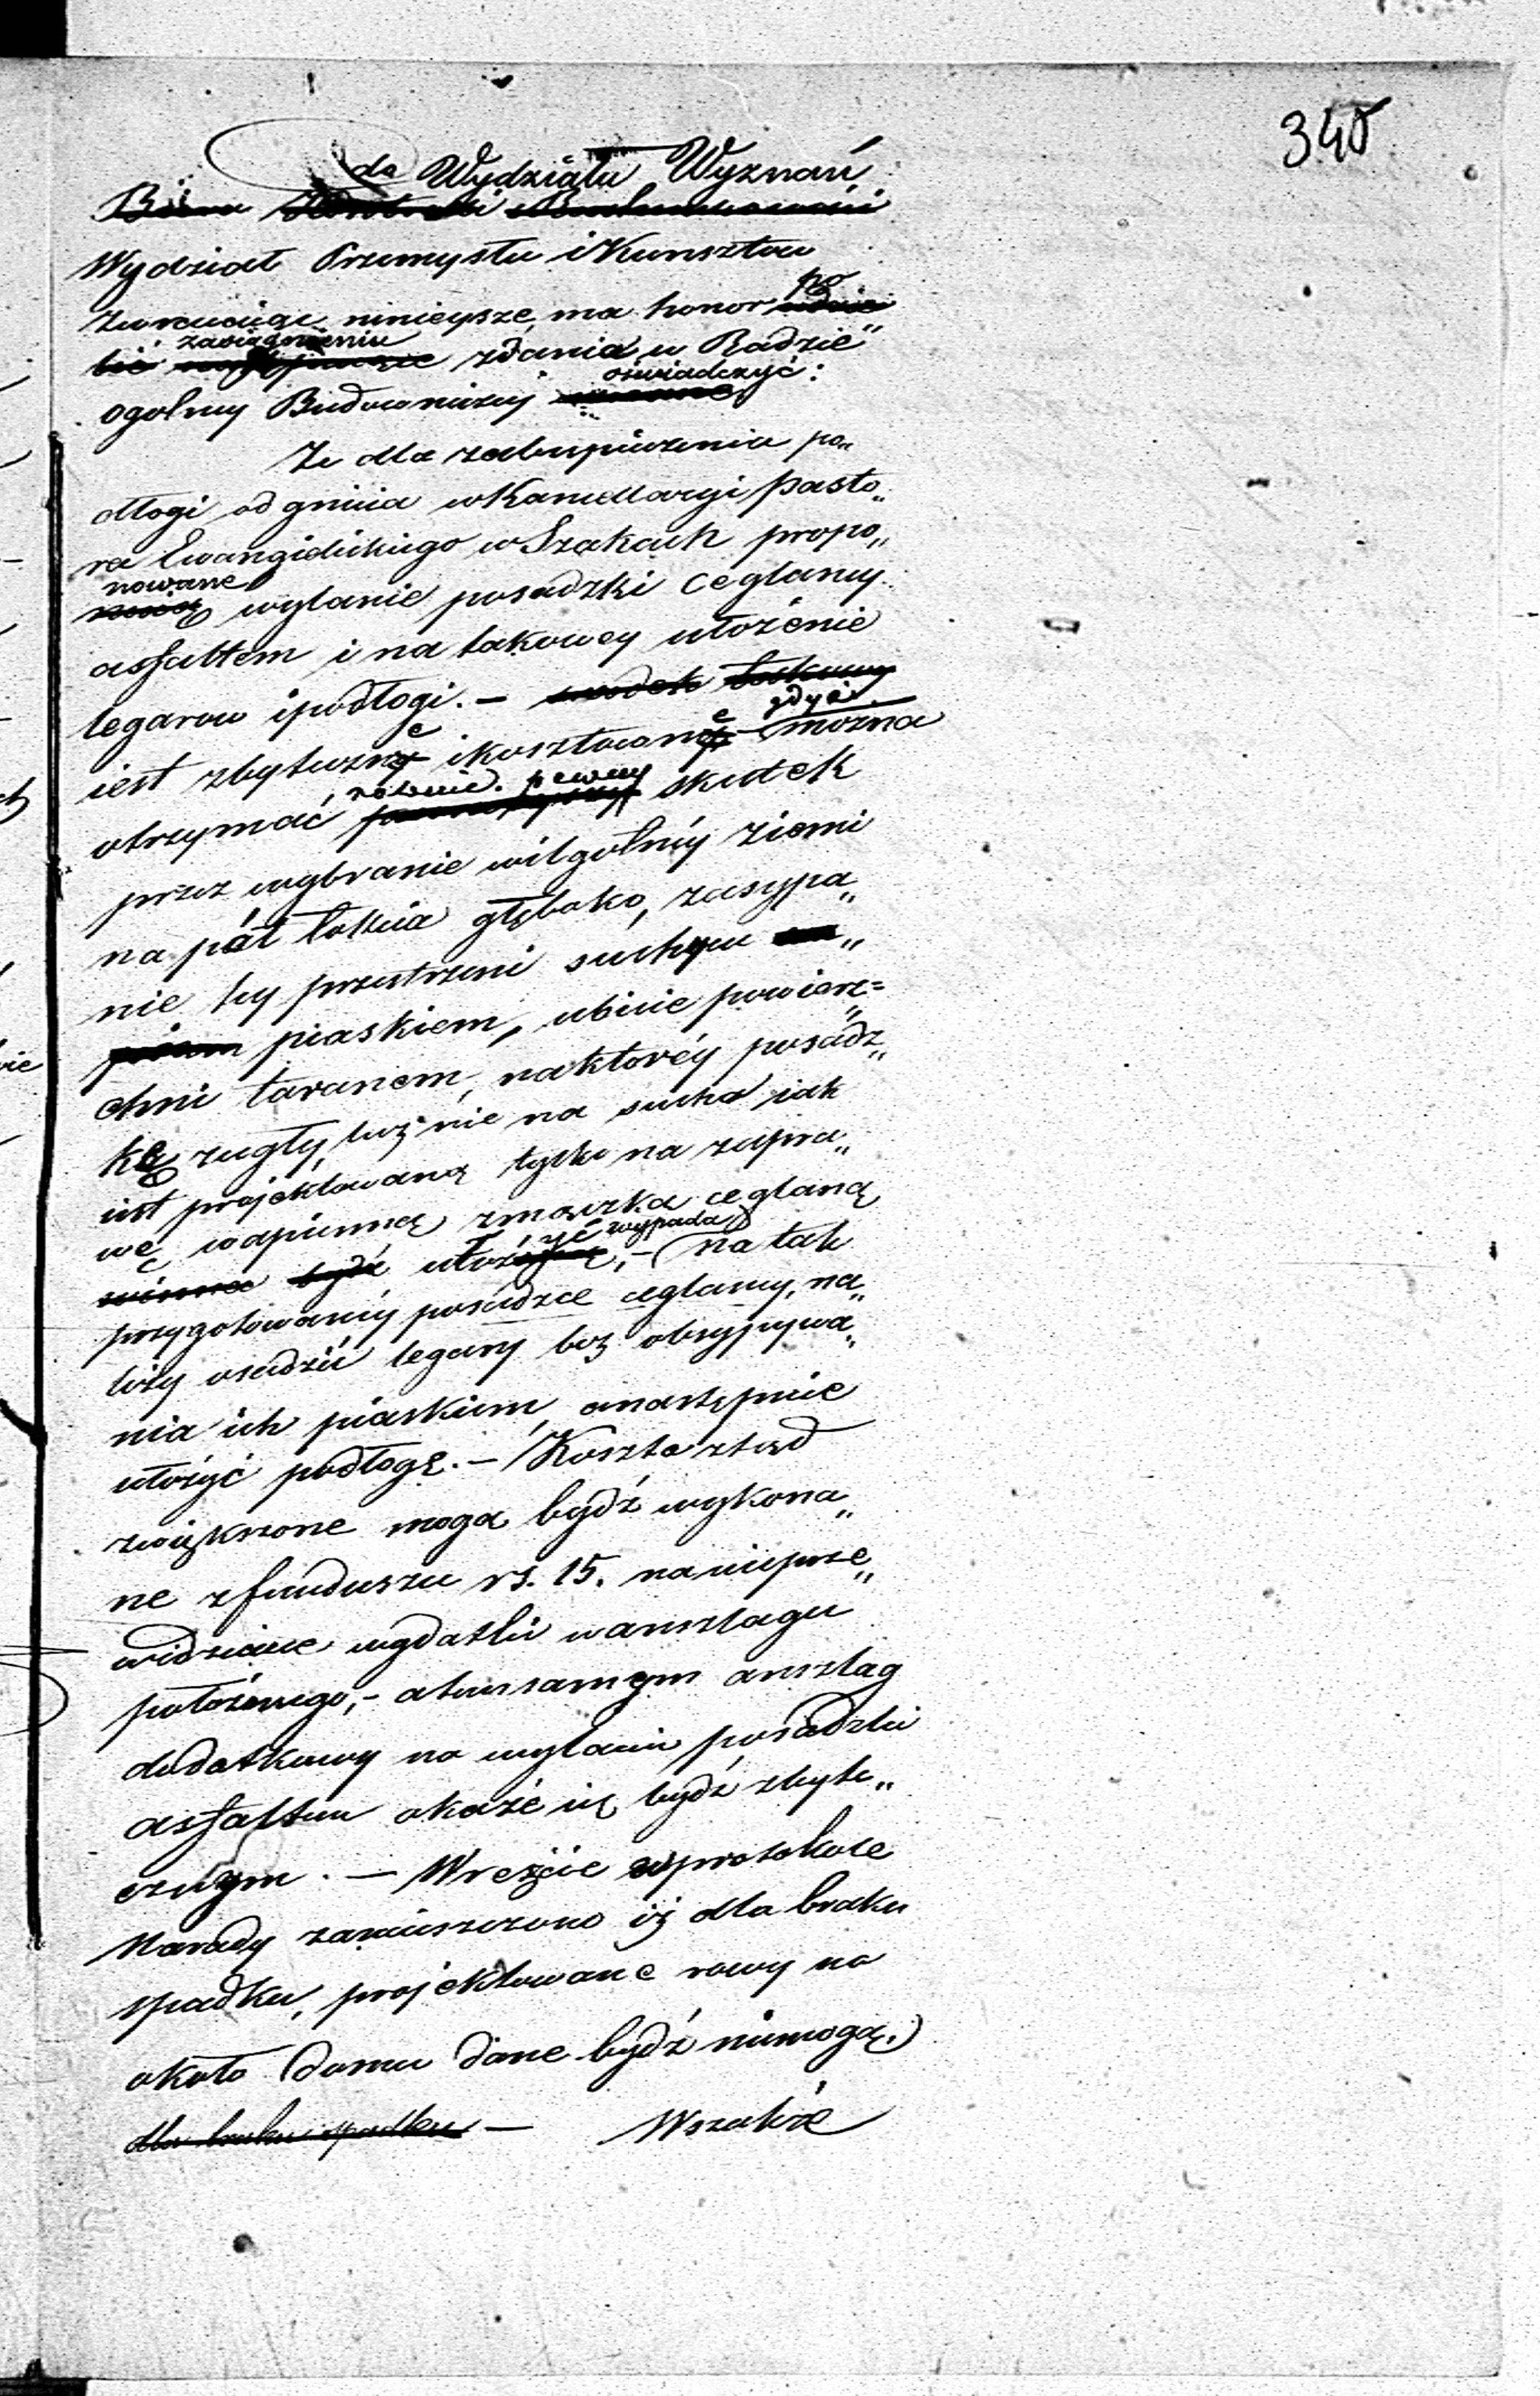 340
do Wydziału Wyznań
Wydział Przemysłu i Kunsztow
zwracaiąc ninieysze, ma honor po
zasiągnieniu zdania w Radzie
ogolney Budowniczey oświadczyć:
Że dla zabezpieczenia po„
dłogi od gnicia w Kancellaryi pasto„
ra Ewangielickiego w Szakach propo„
nowane wylanie posadzki ceglaney
asfaltem i na takowey ułożenie
legarow i podłogi. –
iest zbyteczne i kosztowne gdyż można
otrzymać równie pewny skutek
przez wybranie wilgotnéy ziemi
na pół łokcia głęboko, zasypa„
nie tey przestrzeni suchym
piaskiem, ubicie powierz=
chni taranem, na któréy posadz„
kę z cegły, lecz nie na sucho jak
iest projektowaną tylko na zapra„
wę wapienną z mączką ceglaną
ułożyć wypada, – na tak
przygotowanéy posadzce ceglaney, na„
leży osadzić legary bez obsypywa„
nia ich piaskiem, a następnie
ułożyć podłogę. – Koszta ztąd
zwiększone mogą bydź wykona„
ne z funduszu rs. 15. na nieprze„
widziane wydatki w anszlagu
położonego, – a tem samym anszlag
dodatkowy na wylanie posadzki
asfaltem okaże się bydź zbyte„
cznym. – Wreście w protokole
Narady zamieszczono iż dla braku
spadku, projektowane rowy na
około domu dane bydź niemogą.
dla braku spadku – Wszakże